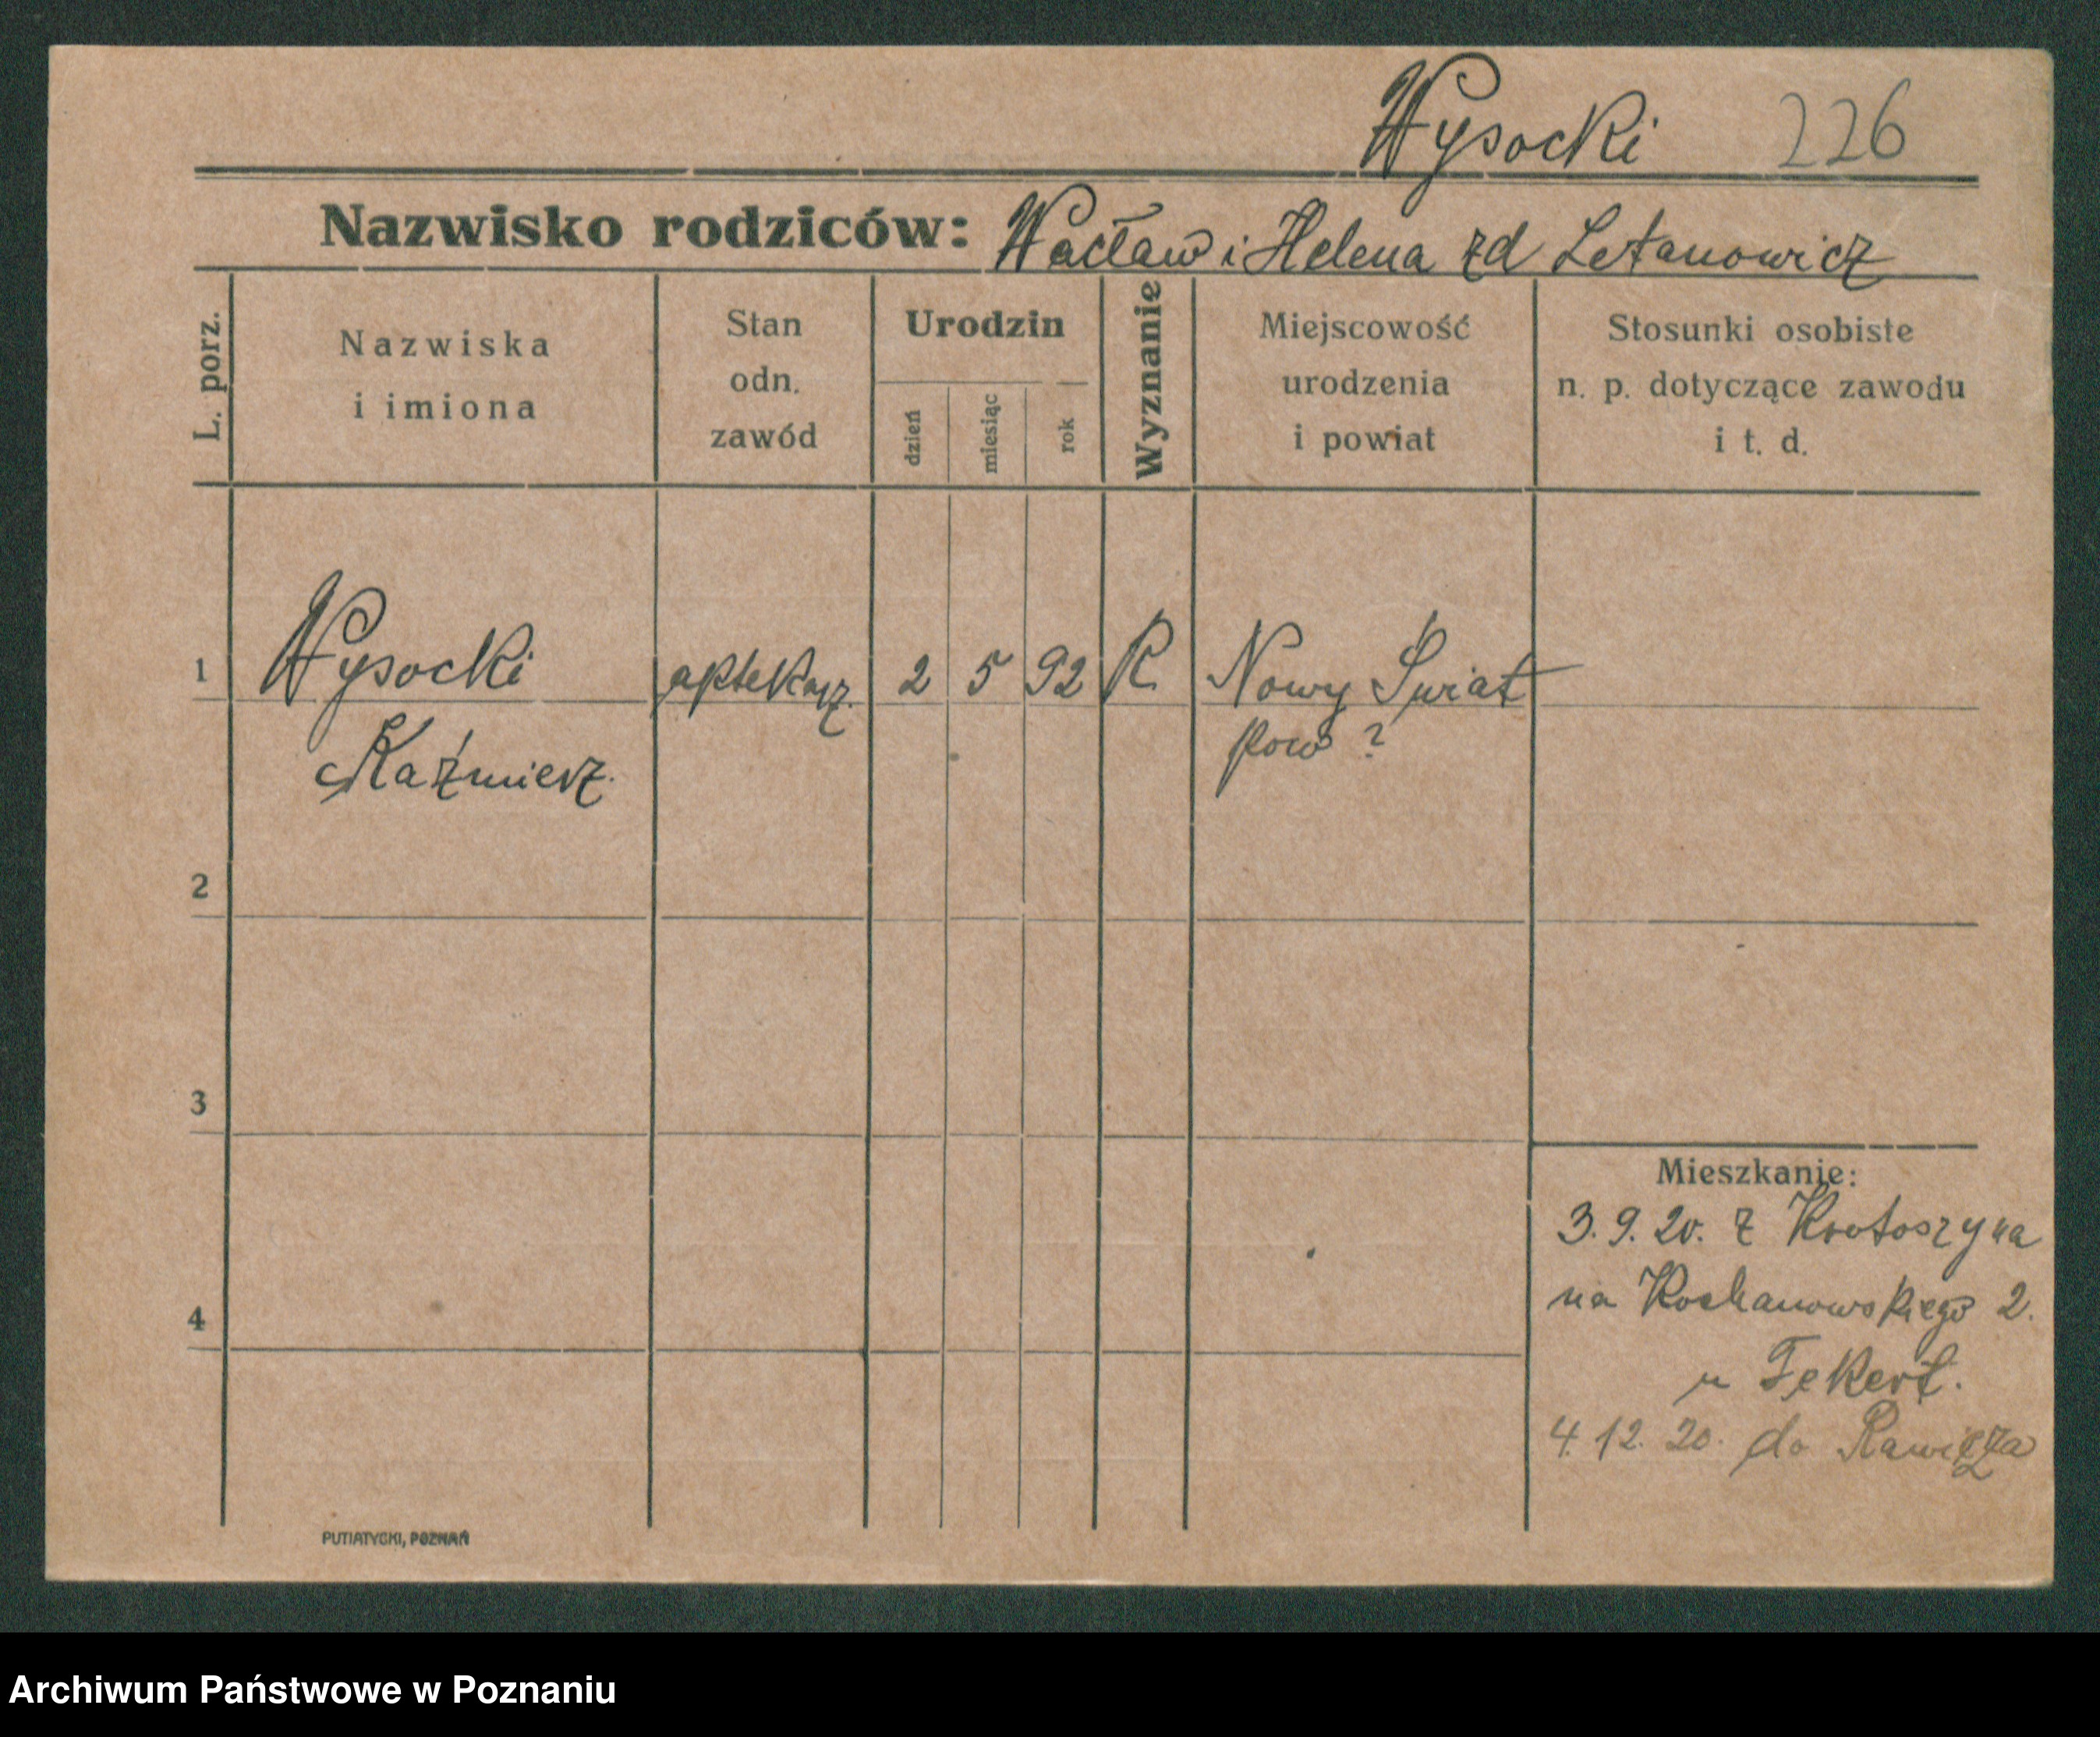 Wysocki 226
Nazwisko rodziców: Wacław i Helena zd Letanowicz
L. porz.
Nazwiska
i imiona
Stan
odn.
zawód
Urodzin
dzień
miesiąc
rok
Wyznanie
Miejscowość
urodzenia
i powiat
Stosunki osobiste
n. p. dotyczące zawodu
i t. d.
1 Wysocki aptekarz. 2 5 92 R Nowy Swiat
Kaźmierz. pow ?
2
3
4
Mieszkanie:
3. 9. 20. z Krotoszyna
na Kochanowskiego 2.
u Tekert.
4. 12. 20. do Rawicza
PUTIATYCKI, POZNAŃ
Archiwum Państwowe w Poznaniu